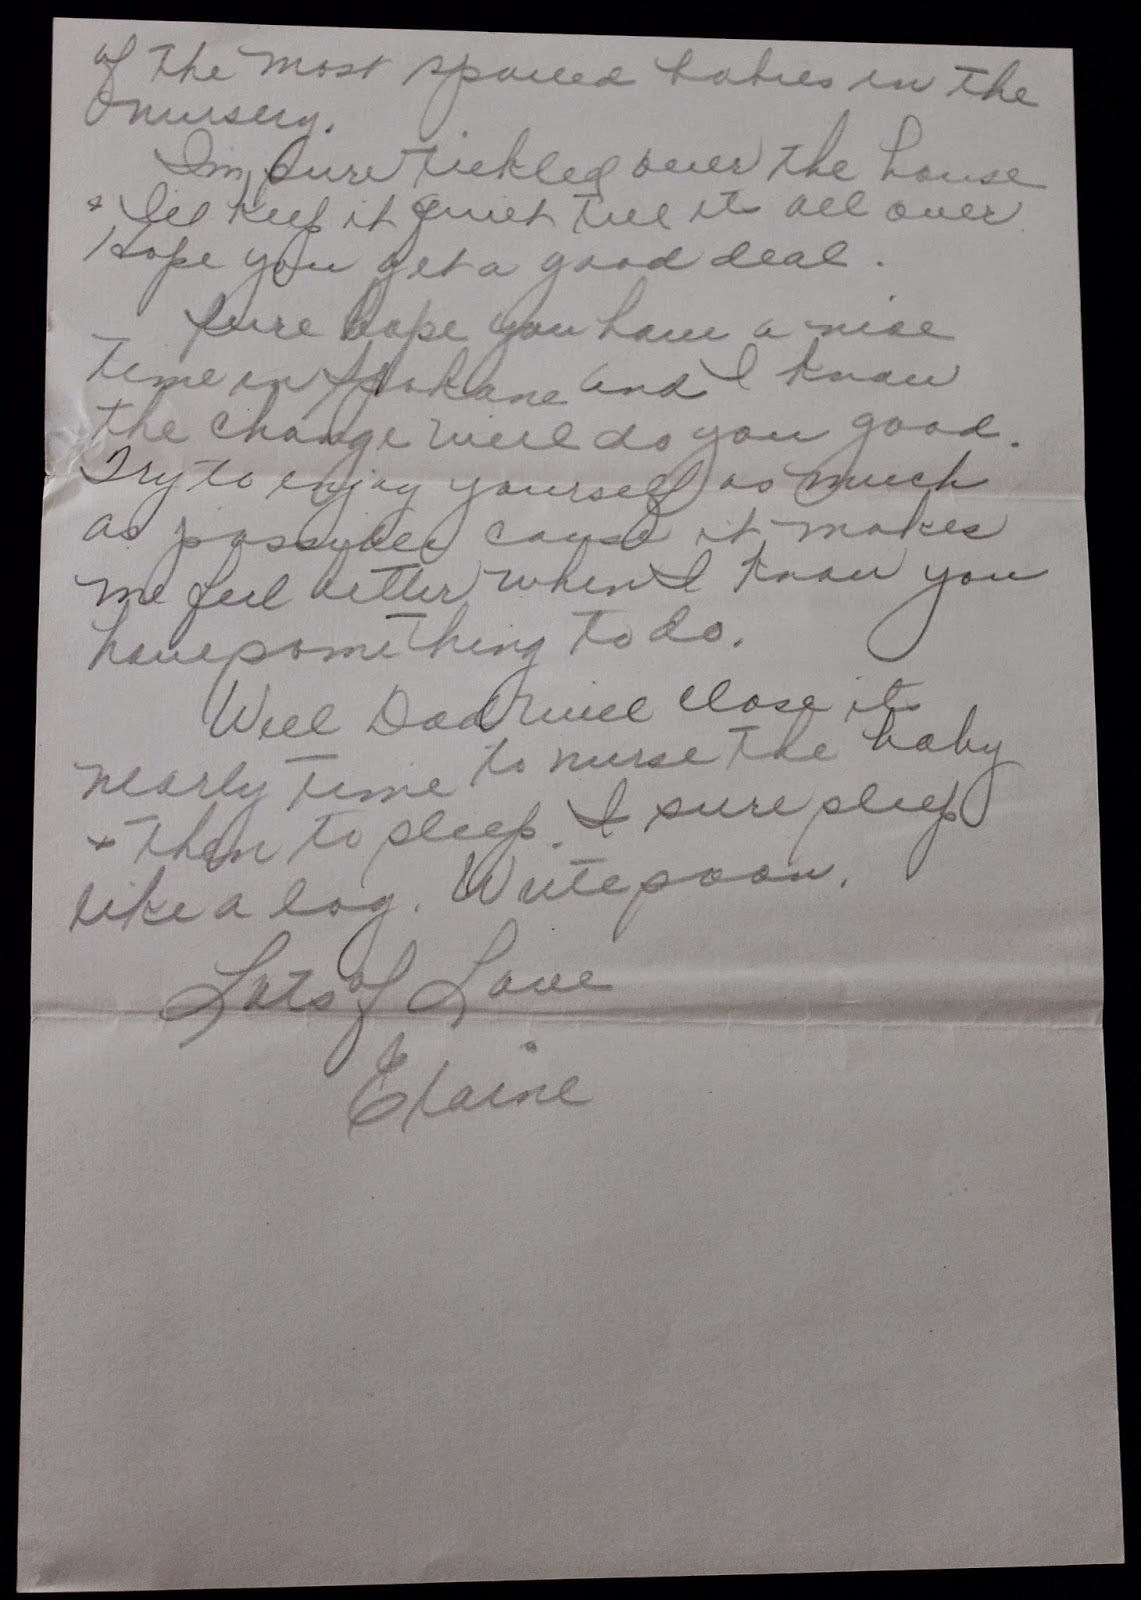 of the most spoiled babies in the
nursery.
I'm sure tickled over the house
+ I'll keep it quiet till its all over
Hope you get a good deal.
Sure hope you have a nice
time in Spokane and I know
the change will do you good.
Try to enjoy yourself as much
as possible cause it makes
me feel better when I know you
have something to do.
Well Dad will close its
nearly time to nurse the baby
+ then to sleep. I sure sleep
like a log. Write soon.
Lots of Love
Elaine